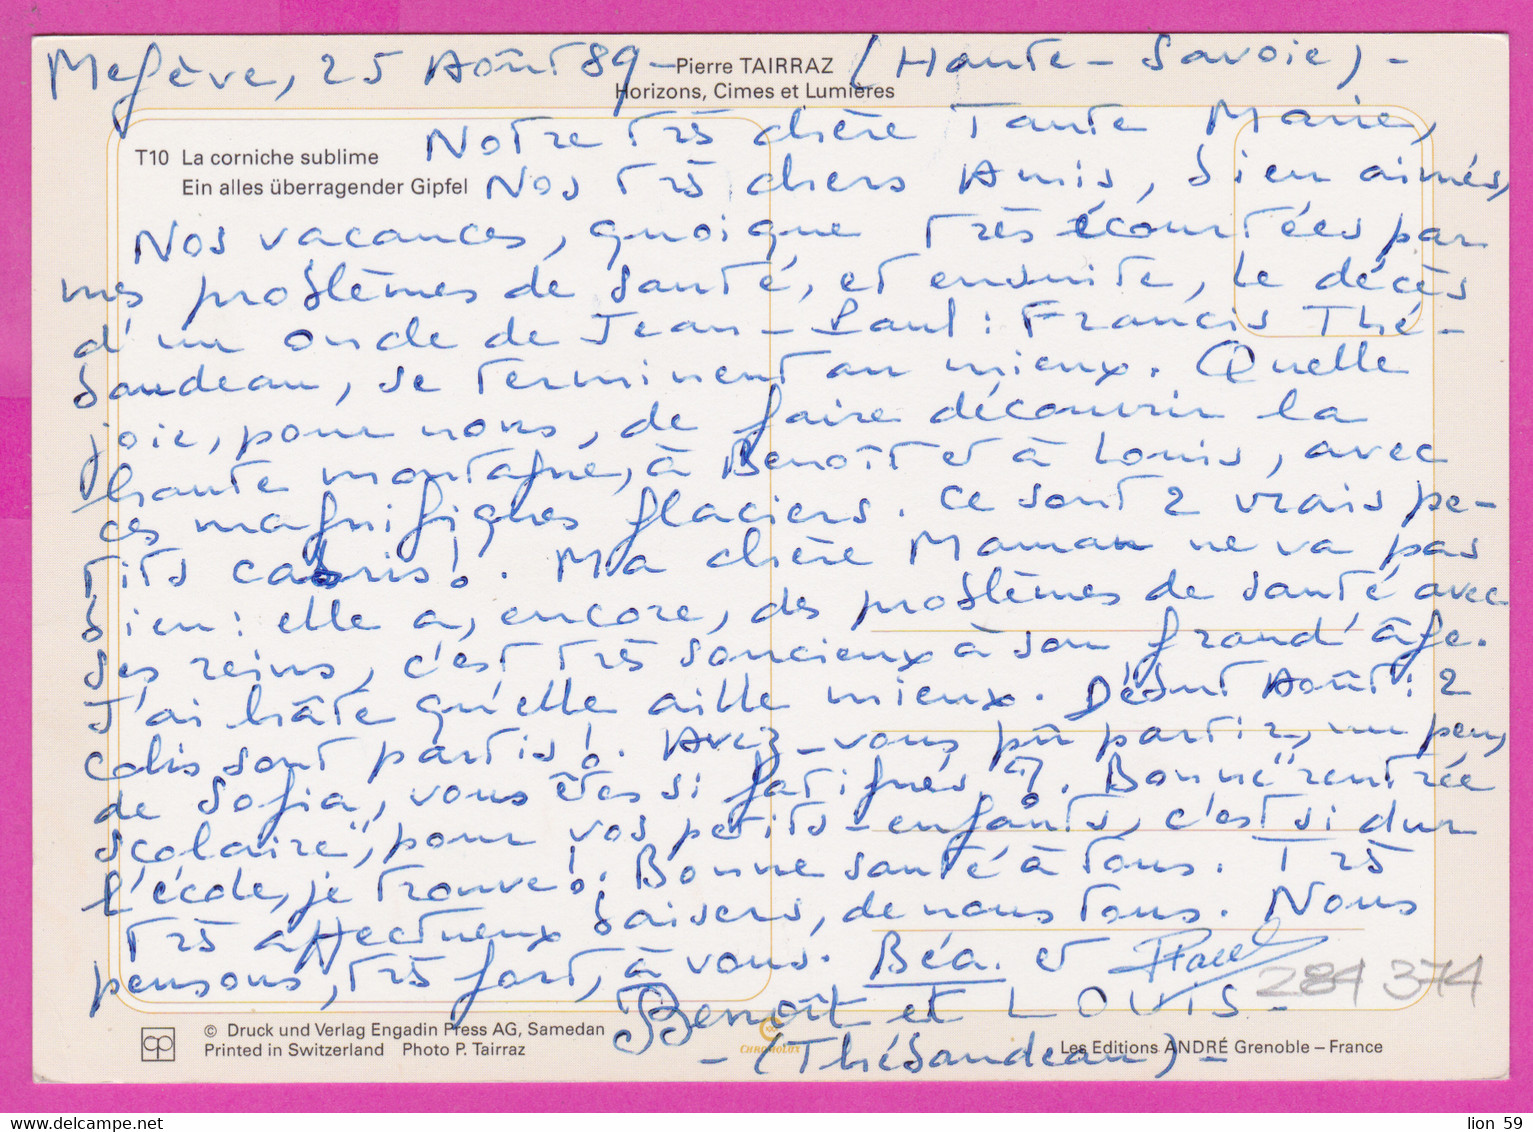 Megève, 25 Août 89 - (Haute - Savoie) -
Pierre TAIRRAZ
Horizons, Cimes et Lumières
T10 La corniche sublime
Ein alles überragender Gipfel
Notre très chère Tante Marie,
Nos très chers Amis, bien aimés,
Nos vacances, quoique très écourtées par
mes problèmes de santé, et ensuite, le décès
d'un oncle de Jean - Paul : Francis Thé-
baudeau, se terminent au mieux. Quelle
joie, pour nous, de faire découvrir la
haute montagne, à Benoît et à Louis, avec
ces magnifiques glaciers. Ce sont 2 vrais pe-
tits cabris !. Ma chère Maman ne va pas
bien : elle a, encore, des problèmes de santé avec
ses reins, c'est très soucieux à son grand' âge.
J'ai hâte qu'elle aille mieux. Début Août : 2
colis sont partis !. Avez-vous pû partir, un peu,
de Sofia, vous êtes si fatigués ?. Bonne "rentrée
scolaire", pour vos petits-enfants, c'est si dur
l'école, je trouve !. Bonne santé à tous. Très
très affectueux baisers, de nous tous. Nous
pensons, très fort, à vous. Béa. et JPaul
Benoît et LOUIS -
- (Thébaudeau) -
284 374
cp
© Druck und Verlag Engadin Press AG, Samedan
Printed in Switzerland Photo P. Tairraz
CHROMOLUX
Les Editions ANDRÉ Grenoble – France
www.delcampe.net
lion 59